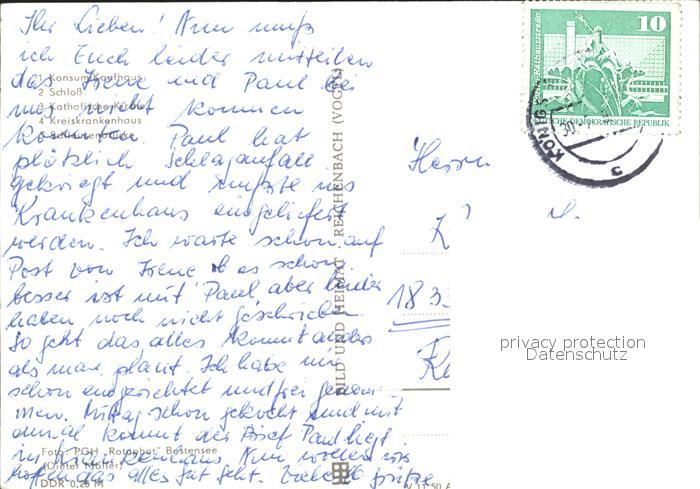 Ihr Lieben! Nun muß
ich Euch leider mitteilen
das Irene und Paul bei
mir nicht kommen
konnten. Paul hat
plötzlich Schlaganfall
gekriegt und mußte ins
Krankenhaus eingeliefert
werden. Ich warte schon auf
Post von Irene ob es schon
besser ist mit Paul, aber leider
haben noch nicht geschrieben
So geht das, alles kommt anders
als man plant. Ich habe mir
schon eingerichtet und frei genom
men. Mittag schon gekocht und mit
einmal kommt der Brief Paul liegt
im Krankenhaus. Nun wollen wir
hoffen das alles gut geht. Viele Grüße
1 Konsum-Kaufhaus
2 Schloß
3 Katholische Kirche
4 Kreiskrankenhaus
5 Schleusenbrücke
Foto: PGH „Rotophot“ Bestensee
(Dieter Möller)
DDR 0,25 M
BILD UND HEIMAT REICHENBACH (VOGTL)
10
Rathausstraße
DEUTSCHE DEMOKRATISCHE REPUBLIK
KÖNIGS
30.
c
Herrn
K
D.
183
privacy protection
Datenschutz